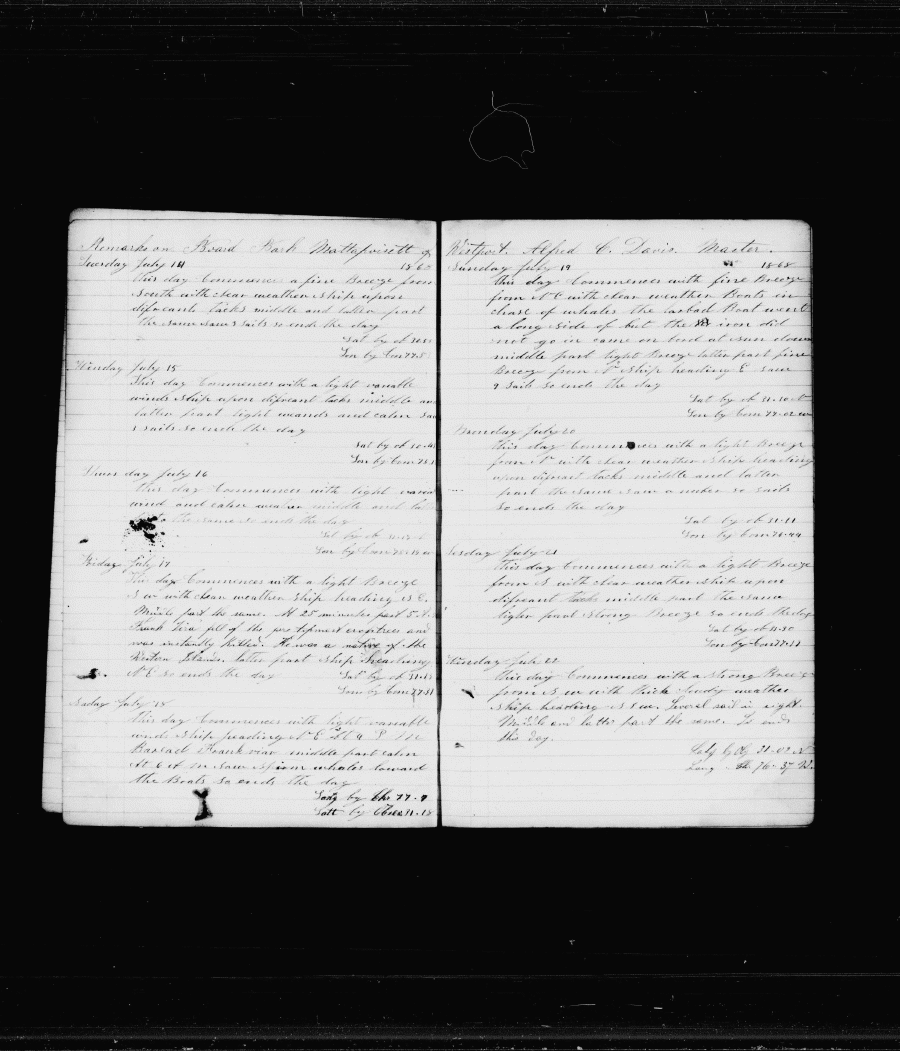 Remarks on Board Bark Mattapoisett of
Teusday July 14 1868
this day Commences a fine Breeze from
South with clear weather ship upon
difreants tacks middle and latter part
the same saw 2 sails so ends the day
Lat by ob
Lon by Crn 77.5
Wensday July 15
This day Commences with a light variable
winds ship upon difreant tacks middle and
latter part light weands and calm saw
sails so ends the day
Lat by ob
Lon by Crn
Thurs day July 16
this day Commences with light
wind and calm weather middle and
the same so ends the day
Lat by ob
Lon by Crn
Friday July 17
This day Commences with a light Breeze
S W with clear weather ship heading S E.
Middle part the same. At 25 minutes past 5
Frank fell of the crosstrees and
was instantly killed. He was a native of the
Western Islands. latter part ship heading
N E so ends the day Lat by ob
Lon by Crn 77.51
Saday July 18
this day Commences with light variable
winds ship heading N E at 9 P M
Buread Frank middle part calm
At 6 A M saw spirm whales loward
the Boats so ends the day
Long by Chr 77.9
Latt by Obs 31.18
Westport. Alfred C. Davis. Master.
Sunday July 19 1868
this day Commences with fine Breeze
from N E with clear weather Boats in
chase of whales the larbad Boat went
a long side of but the iron did
not go in came on bord at sun down
middle part light Breeze latter part fine
Breeze from N ship heading E saw
9 sails so ends the day
Lat by ob 31-10
Lon by Crn 77-02
Monday July 20
this day Commences with a light Breeze
from N with clear weather ship heading
upon difreant tacks middle and latter
part the same saw a number so sails
so ends the day
Lat by ob 31-11
Lon by Crn 76-44
Tusday July 21
this day Commences with a light Breeze
from S with clear weather ship upon
difreant tacks middle part the same
latter part strong Breeze so ends the day
Lat by ob 31-30
Lon by Crn
Winsday July 22
this day Commences with a strong Breeze
from S W with thick weather
ship heading S E. Several sail in sight.
Middle and latter part the same. So ends
this day.
Lat by Ob 31-02 N
Long Chr 76-37 W.